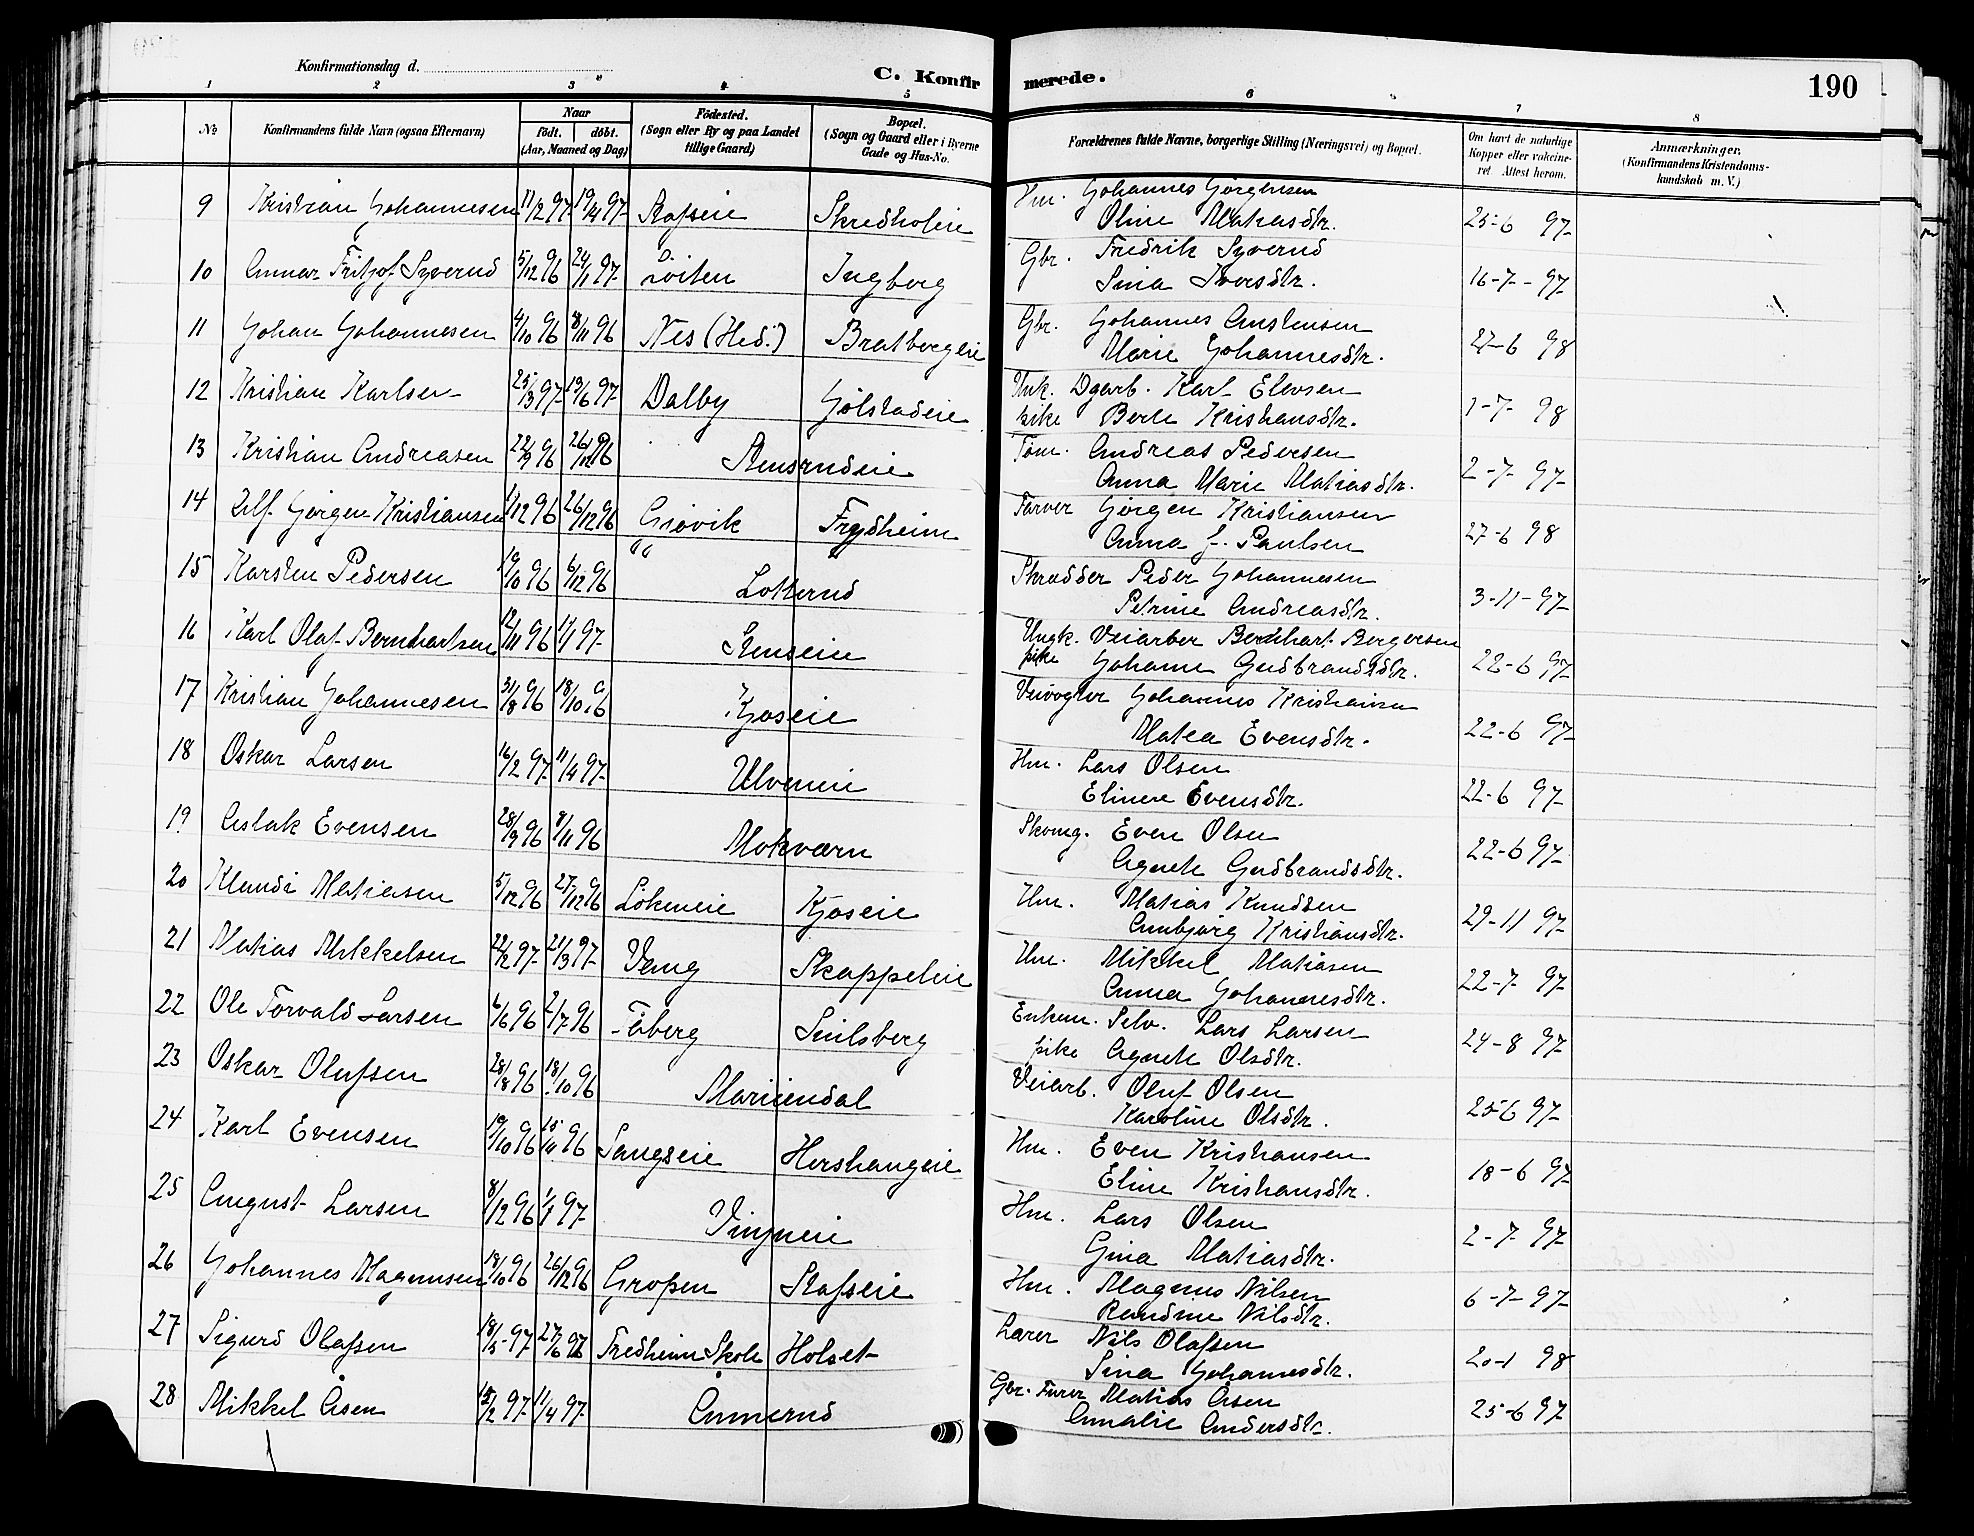 Konfirmationsdag d.
C. Konfirmerede.
190
1 2 3 4 5 6 7 8
№ Konfirmandens fulde Navn (ogsaa Efternavn) Naar født. døbt. (Aar, Maaned og Dag) Fødested. (Sogn eller By og paa Landet tillige Gaard) Bopæl. (Sogn og Gaard eller i Byerne Gade og Hus-No. Forældrenes fulde Navne, borgerlige Stilling (Næringsvei) og Bopæl. Om havt de naturlige Kopper eller vakcineret Attest herom. Anmærkninger. (Konfirmandens Kristendomskundskab m. V.)
9 Kristian Johannesen 11/2 97 19/4 97 Stafseie Skredholeie Hm. Johannes Jørgensen
Oline Matiasdtr. 25-6 97
10 Gunnar Fritjof Syverud 5/12 96 24/1 97 Løiten Ingberg Gbr. Fredrik Syverud
Sina Iversdtr. 16-7-97
11 Johan Johannesen 4/10 96 8/11 96 Nes (Hed.) Bratbergeie Gbr. Johannes Austensen
Marie Johannesdtr. 27-6 98
12 Kristian Karlsen 25/3 97 19/6 97 Dalby Gjølstadeie Unk. Dgarb. Karl Elevsen
pike Berte Kristiansdtr. 1-7-98
13 Kristian Andreasen 22/9 96 Stensrudeie Tøm. Andreas Pedersen
Anna Marie Matiasdtr. 2-7-97
14 Alf Jørgen Kristiansen 1/12 96 26/12 96 Gjøvik Frydheim Farver Jørgen Kristiansen
Anna f. Paulsen 27-6 98
15 Karsten Pedersen 19/10 96 6/12 96 " Lotterud Skrædder Peder Johannesen
Petrine Andreasdtr. 3-11-97
16 Karl Olaf Bernhartsen 12/11 96 17/1 97 Stenseie Ungk. Veiarber Bernhart Bergersen
pike Johanne Gudbrandsdtr. 22-6 97
17 Kristian Johannesen 31/8 96 18/10 96 Kjoseie Veivogter Johannes Kristiansen
Matea Evensdtr. 22-6 97
18 Oskar Larsen 16/2 97 11/4 97 Ulveneie Hm. Lars Olsen
Elinere Evensdtr. 22-6 97
19 Aslak Evensen 28/9 96 8/11 96 Mokværn Skomg. Even Olsen
Agnete Gudbrandsdtr. 22-6 97
20 Klaudi Matiasen 5/12 96 27/12 96 Løkeneie Kjoseie Hm. Matias Knudsen
Anbjørg Kristiansdtr. 29-11 97
21 Matias Mikkelsen 22/2 97 21/3 97 Vang Skappeleie Hm. Mikkel Matiasen
Anna Johannesdtr. 22-7 97
22 Ole Torvald Larsen 6/6 96 2/7 96 Fåberg Smilsberg Enkem. Selv. Lars Larsen
pike Agnete Olsdtr. 24-8 97
23 Oskar Olufsen 28/8 96 18/10 96 Mariendal Veiarb. Oluf Olsen
Karoline Olsdtr. 25-6 97
24 Karl Evensen 19/10 96 15/11 96 Sangseie Hershaugeie Hm. Even Kristiansen
Eline Kristiansdtr. 18-6 97
25 August Larsen 8/12 96 1/1 97 Vingneie Hm. Lars Olsen
Gina Matiasdtr. 2-7-97
26 Johannes Magnusen 18/10 96 26/12 96 Gropen Stafseie Hm. Magnus Nilsen
Randine Nilsdtr. 6-7-97
27 Sigurd Olafsen 27/6 97 Fredheim Skole Holset Lærer Nils Olafsen
Sina Johannesdtr. 20-1 98
28 Mikkel Åsen 11/4 97 Ånnerud Gbr. Furer Matias Åsen
Amalie Andersdtr. 25-6 97